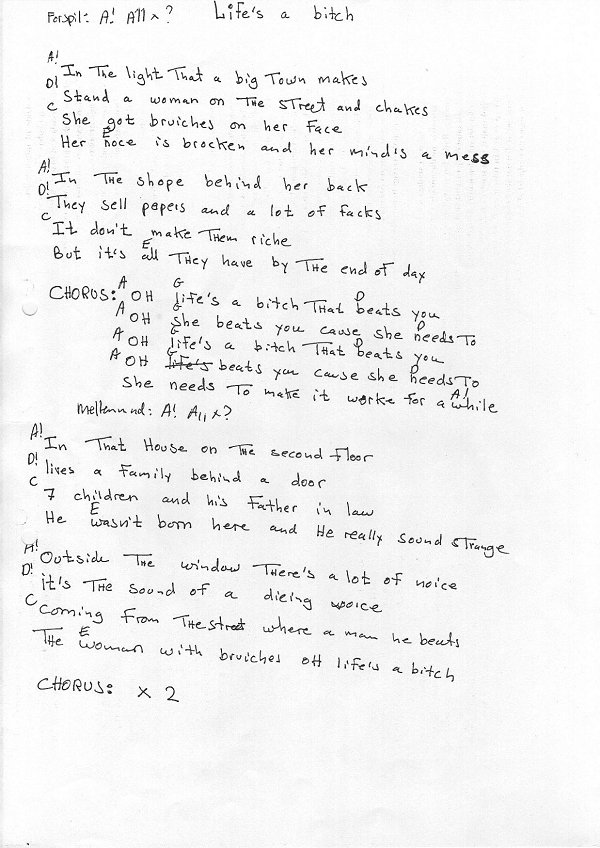 Forspil: A! A11 x ? Life's a bitch
A!
In The light That a big Town makes
D!
Stand a woman on The street and chakes
C
She got bruiches on her Face
E
Her noce is brocken and her mind's a mess
A!
In The shope behind her back
D!
They sell papers and a lot of facks
C
It don't make Them riche
E
But it's all They have by The end of day
A G D
CHORUS: OH life's a bitch That beats you
A G D
OH She beats you cause she needs To
A G D
OH life's a bitch That beats you
A G D
OH life's beats you cause she needs To
A!
She needs To make it worke for a while
Mellemmd: A! A11 x ?
A!
In That House on The second Floor
D!
lives a Family behind a door
C
7 children and his Father in law
E
He wasn't born here and He really sound strange
A!
Outside The window There's a lot of noice
D!
it's The sound of a dieing voice
C
Coming From The street where a man he beats
E
The woman with bruiches oH life's a bitch
CHORUS: x 2